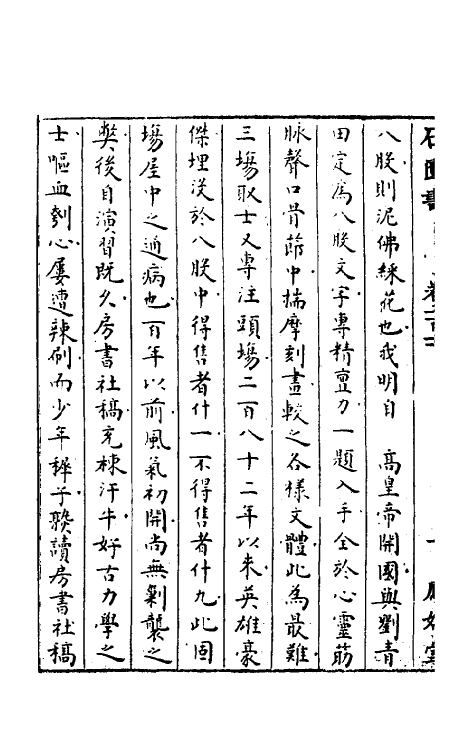 八股則泥佛綵花也我明自　高皇帝開國與劉青
田定為八股文字專精亶力一題入手全於心靈筋
脉聲口骨節中揣摩刻畫較之各樣文體此為最難
三場取士又專注頭場二百八十二年以來英雄豪
傑埋沒於八股中得售者什一不得售者什九此固
場屋中之通病也百年以前風氣初開尚無剿襲之
弊後自演習既久房書社稿充棟汗牛好古力學之
士嘔血刳心屢遭辣例而少年稺子熟讀房書社稿